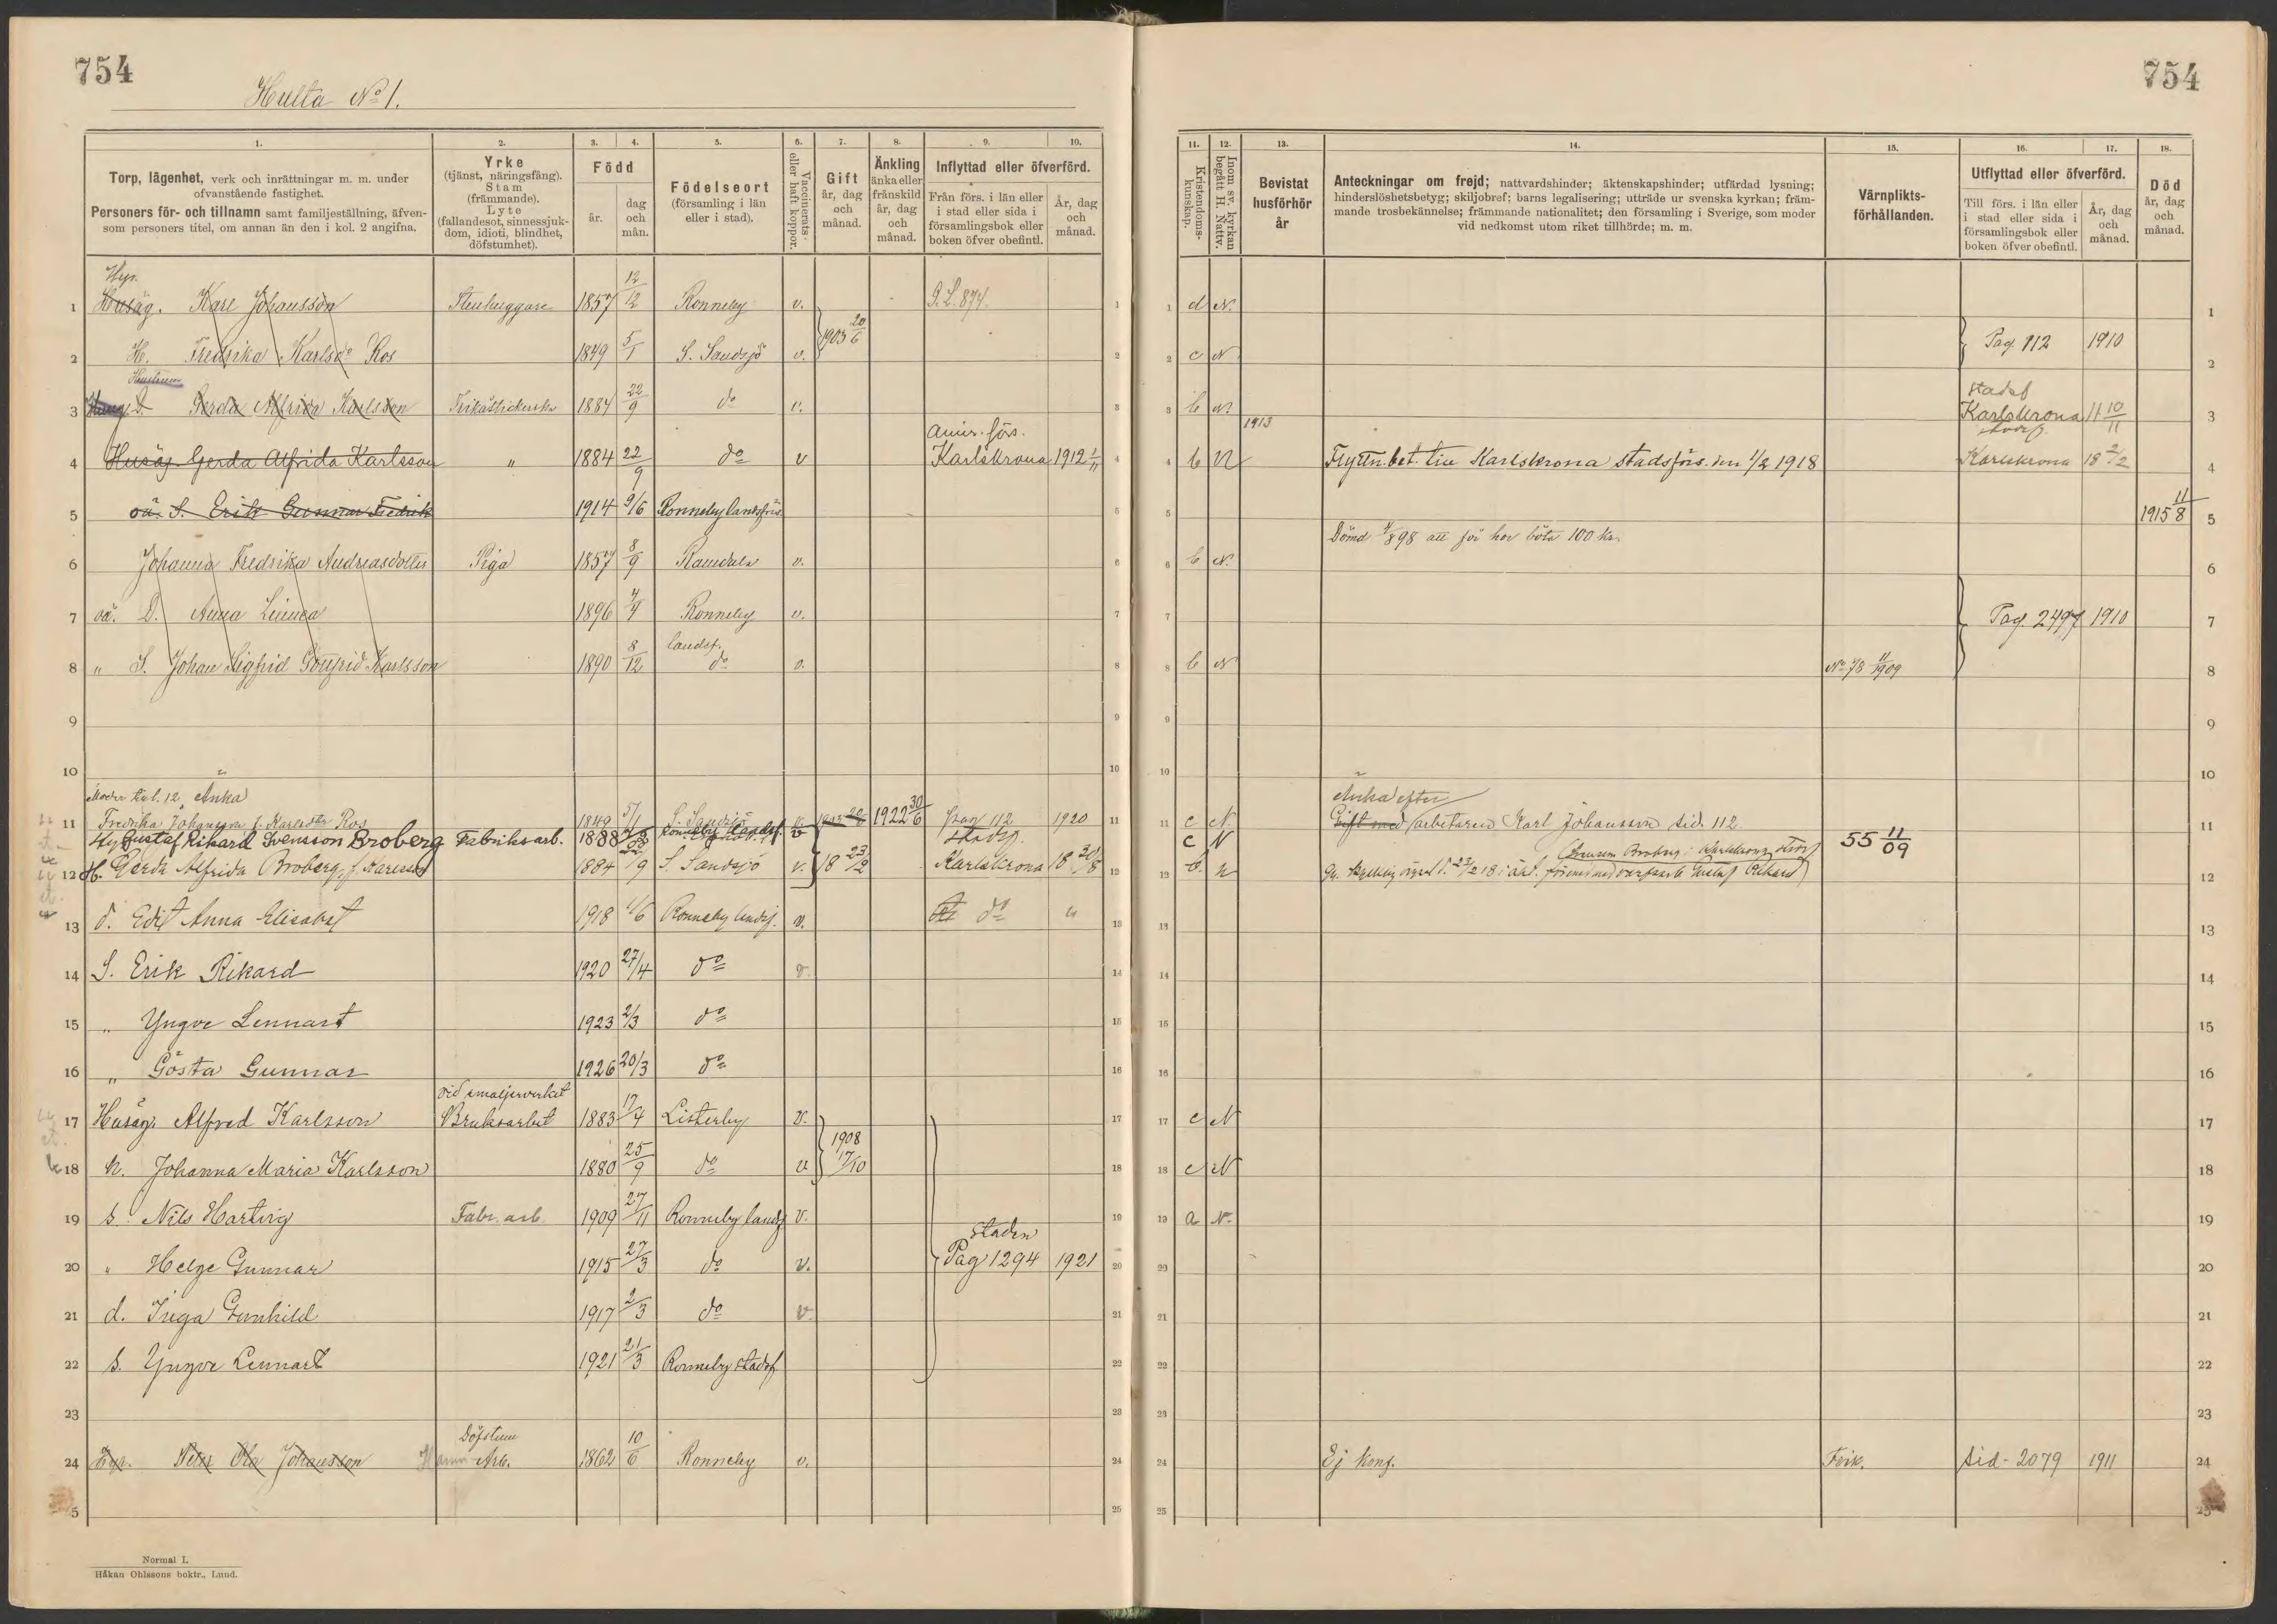 754
754
Hulta No 1.
1. 2. 3. 4. 5. 6. 7. 8. 9. 10.
Torp, lägenhet, verk och inrättningar m. m. under
ofvanstående fastighet.
Personers för- och tillnamn samt familjeställning, äfven-
som personers titel, om annan än den i kol. 2 angifna.
Yrke
(tjänst, näringsfång).
Stam
(främmande).
Lyte
(fallandesot, sinnessjuk-
dom, idioti, blindhet,
döfstumhet).
Född
år.
dag
och
mån.
Födelseort
(församling i län
eller i stad).
Vaccinerats
eller haft koppor.
Gift
år, dag
och
månad.
Änkling
änka eller
frånskild
år, dag
och
månad.
Inflyttad eller öfverförd.
Från förs. i län eller
i stad eller sida i
församlingsbok eller
boken öfver obefintl.
År, dag
och
månad.
11. 12. 13. 14. 15. 16. 17. 18.
Kristendoms-
kunskap.
Inom sv. kyrkan
begått H. Nattv.
Bevistat
husförhör
år
Anteckningar om frejd; nattvardshinder; äktenskapshinder; utfärdad lysning;
hinderslöshetsbetyg; skiljobref; barns legalisering; utträde ur svenska kyrkan; främ-
mande trosbekännelse; främmande nationalitet; den församling i Sverige, som moder
vid nedkomst utom riket tillhörde; m. m.
Värnplikts-
förhållanden.
Utflyttad eller öfverförd.
Till förs. i län eller
i stad eller sida i
församlingsbok eller
boken öfver obefintl.
År, dag
och
månad.
Död
år, dag
och
månad.
Hyr.
1 Husäg. Karl Johansson Stenhuggare 1857 12/12 Ronneby v. G. L. 874. 1 1 d N. 1
1903 20/6
2 H. Fredrika Karlsdr Ros 1849 5/1 S. Sandsjö v. 2 2 c N Pag. 112 1910 2
Hustrun
3 D. Gerda Alfrida Karlsson Trikåstickerska 1884 22/9 do v. 3 3 b N. 1913 stadsf Karlskrona 11 10/11 3
Amir. förs.
4 Husäg. Gerda Alfrida Karlsson " 1884 22/9 do v Karlskrona 1912 1/11 4 4 b N Flyttn.bet. till Karlskrona stadsförs. den 1/2 1918 Karlskrona 18 2/2 4
5 oä. S. Erik Gunnar Fredrik 1914 9/6 Ronneby landsförs 5 5 1915 11/8 5
Dömd 4/8 98 att för hor böta 100 kr.
6 Johanna Fredrika Andreasdotter Piga 1857 8/9 Ramdala v. 6 6 b N. 6
7 oä. D. Anna Linnea 1896 4/4 Ronneby v. 7 7 Pag. 2497 1910 7
landsf.
8 " S. Johan Sigfrid Gottfrid Karlsson 1890 8/12 do v. 8 8 b N No 78 11/1909 8
9 9 9 9
10 10 10 10
Moder till 12, Änka Änka efter
11 Fredrika Johansson f. Karlsdtr Ros 1849 5/1 S. Sandsjö v. 1903 20/6 1922 30/6 pag 112 1920 11 11 c N. Gift med arbetaren Karl Johansson sid. 112. 11
Hy Gustaf Rikard Svensson Broberg Fabriksarb. 1888 Ronneby landsf. v stadsf. c N 55 11/09
12 H. Gerda Alfrida Broberg, f. Karlsson 1884 22/9 S. Sandsjö v. 18 23/2 Karlskrona 18 30/8 12 12 b. N 12
13 d. Edit Anna Elisabet 1918 11/6 Ronneby landsf. v. do " 13 13 13
14 S. Erik Rikard 1920 27/4 do v. 14 14 14
15 " Yngve Lennart 1923 2/3 do 15 15 15
16 " Gösta Gunnar 1926 20/3 do 16 16 16
vid emaljerverket
17 Husäg. Alfred Karlsson Bruksarbet 1883 17/4 Listerby v. 17 17 c N 17
18 h. Johanna Maria Karlsson 1880 25/9 do v 1908 17/10 18 18 c N 18
19 s. Nils Hartvig Fabr. arb. 1909 27/11 Ronneby landsf v. 19 19 a N. 19
staden
20 " Helge Gunnar 1915 27/3 do v. Pag 1294 1921 20 20 20
21 d. Inga Gunhild 1917 2/3 do v. 21 21 21
22 s. Yngve Lennart 1921 21/3 Ronneby stadsf 22 22 22
23 23 23 23
Döfstum
24 Hyr. Nils Ola Johansson Arb. 1862 10/6 Ronneby v. 24 24 Ej konf. Frik. sid. 2079 1911 24
25 25 25
Normal I.
Håkan Ohlssons boktr., Lund.